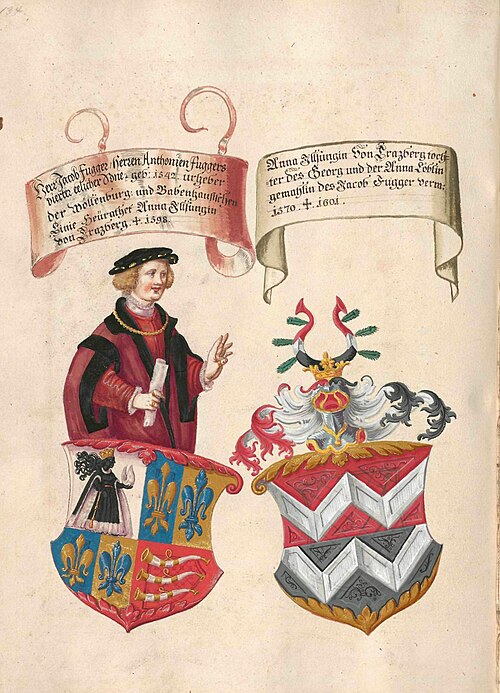 134
Herr Jacob Fugger, Herren Anthonien Fuggers
vierter etlicher Sone, geb: 1542. urheber
der Wöllenburg: und Babenhausischen
Linie Heürathet Anna Illsungin
von Trazberg. † 1598.
Anna Illsungin Von Trazberg toch¬
ter des Georg und der Anna Löblin
gemahlin des Jacob Fugger verm:
1570. † 1601.